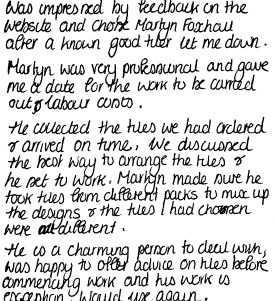 Was impressed by feedback on the
website and chose Martyn Foxhall
after a known good tiler let me down.
Martyn was very professional and gave
me a date for the work to be carried
out & labour costs.
He collected the tiles we had ordered
& arrived on time, we discussed
the best way to arrange the tiles &
he set to work. Martyn made sure he
took tiles from different packs to mix up
the designs & the tiles I had chosen
were all different.
He is a charming person to deal with,
was happy to offer advice on tiles before
commencing work and his work is
exception. Would use again.